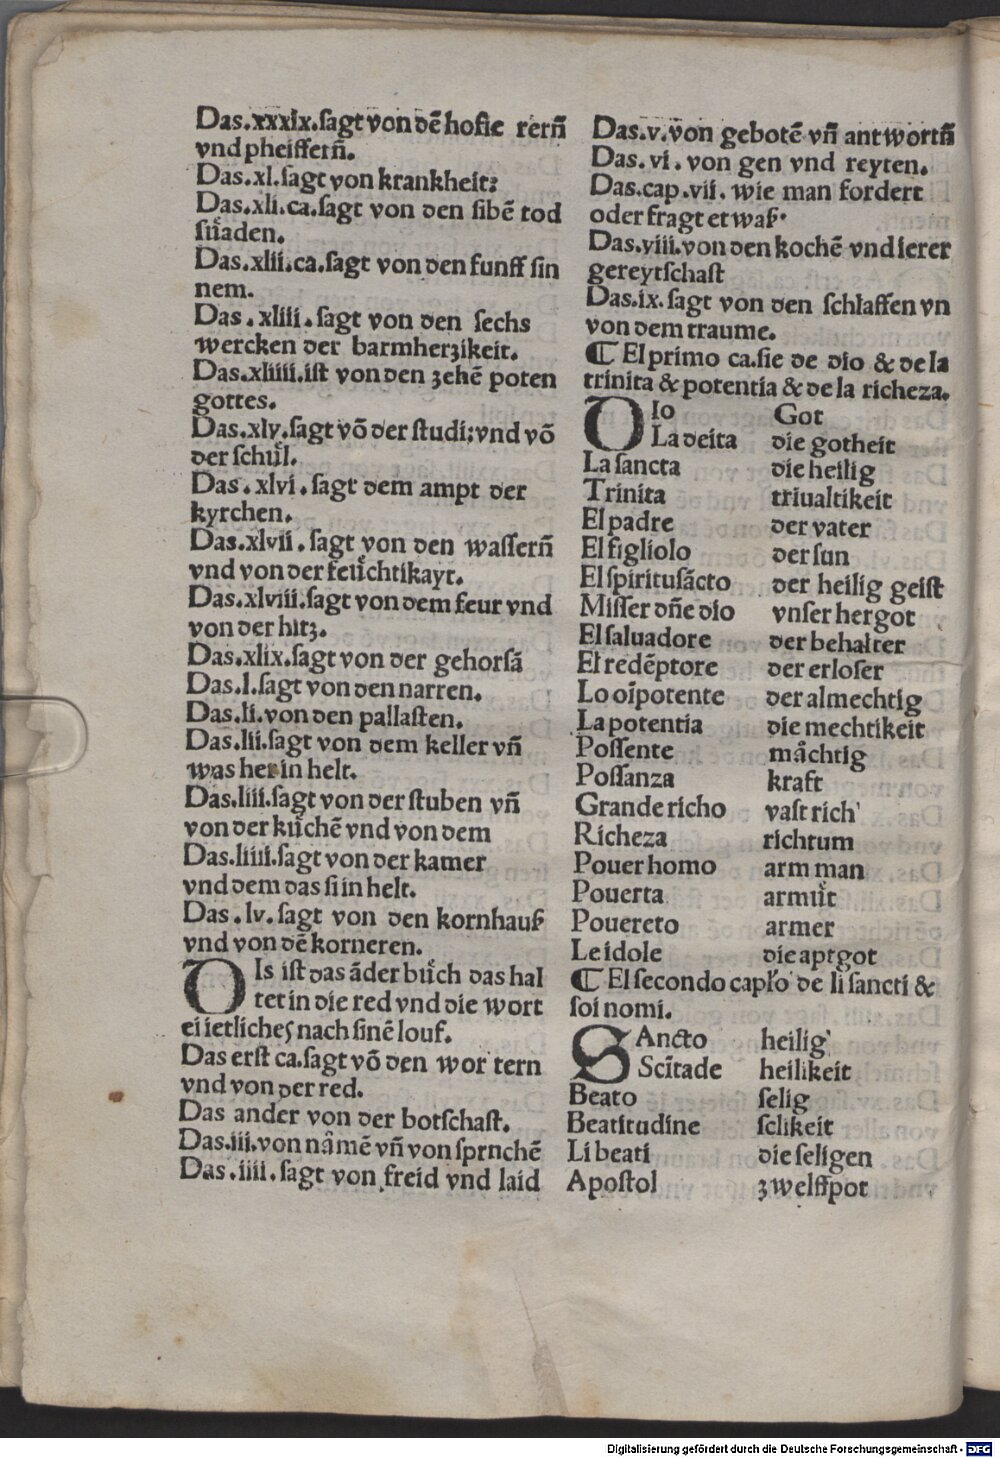 Das.xxxix.sagt von dē hofie rern̄
vnd pheiffern̄.
Das.xl.sagt von krankheit:
Das.xli.ca.sagt von den sibē tod
sūaden.
Das.xlii.ca.sagt von den funff sin
nem.
Das.xliii.sagt von den sechs
wercken der barmherzikeit.
Das.xliiii.ist von den zehē poten
gottes.
Das.xlv.sagt vō der studi:vnd vō
der schůl.
Das.xlvi.sagt dem ampt der
kyrchen.
Das.xlvii.sagt von den wassern̄
vnd von der feůchtikayt.
Das.xlviii.sagt von dem feur vnd
von der hitz.
Das.xlix.sagt von der gehorsā
Das.l.sagt von den narren.
Das.li.von den pallasten.
Das.lii.sagt von dem keller vn̄
was her in helt.
Das.liii.sagt von der stuben vn̄
von der kůchē vnd von dem
Das.liiii.sagt von der kamer
vnd dem das si in helt.
Das.lv.sagt von den kornhauß
vnd von dē korneren.
DIs ist das āder bůch das hal
tet in die red vnd die wort
ei ietliches nach sinē louf.
Das erst ca.sagt vō den wor tern
vnd von der red.
Das ander von der botschaft.
Das.iii.von nâmē vn̄ von sprnchē
Das.iiii.sagt von freid vnd laid
Das.v.von gebotē vn̄ antwortn̄
Das.vi.von gen vnd reyten.
Das.cap.vii.wie man fordert
oder fragt etwaß.
Das.viii.von den kochē vnd ierer
gereytschaft
Das.ix.sagt von den schlaffen vn
von dem traume.
¶ El primo ca.sie de dio & de la
trinita & potentia & de la richeza.
DIo Got
La deita die gotheit
La sancta die heilig
Trinita triualtikeit
El padre der vater
El figliolo der sun
El spiritusācto der heilig geist
Misser dn̄e dio vnser hergot
El saluadore der behalter
El redēptore der erloser
Lo oīpotente der almechtig
La potentia die mechtikeit
Possente måchtig
Possanza kraft
Grande richo vast rich'
Richeza richtum
Pouer homo arm man
Pouerta armůt
Pouereto armer
Le idole die aptgot
¶ El secondo caplo de li sancti &
soi nomi.
SAncto heilig'
Scītade heilikeit
Beato selig
Beatitudine selikeit
Li beati die seligen
Apostol zwelffpot
Digitalisierung gefördert durch die Deutsche Forschungsgemeinschaft - DFG